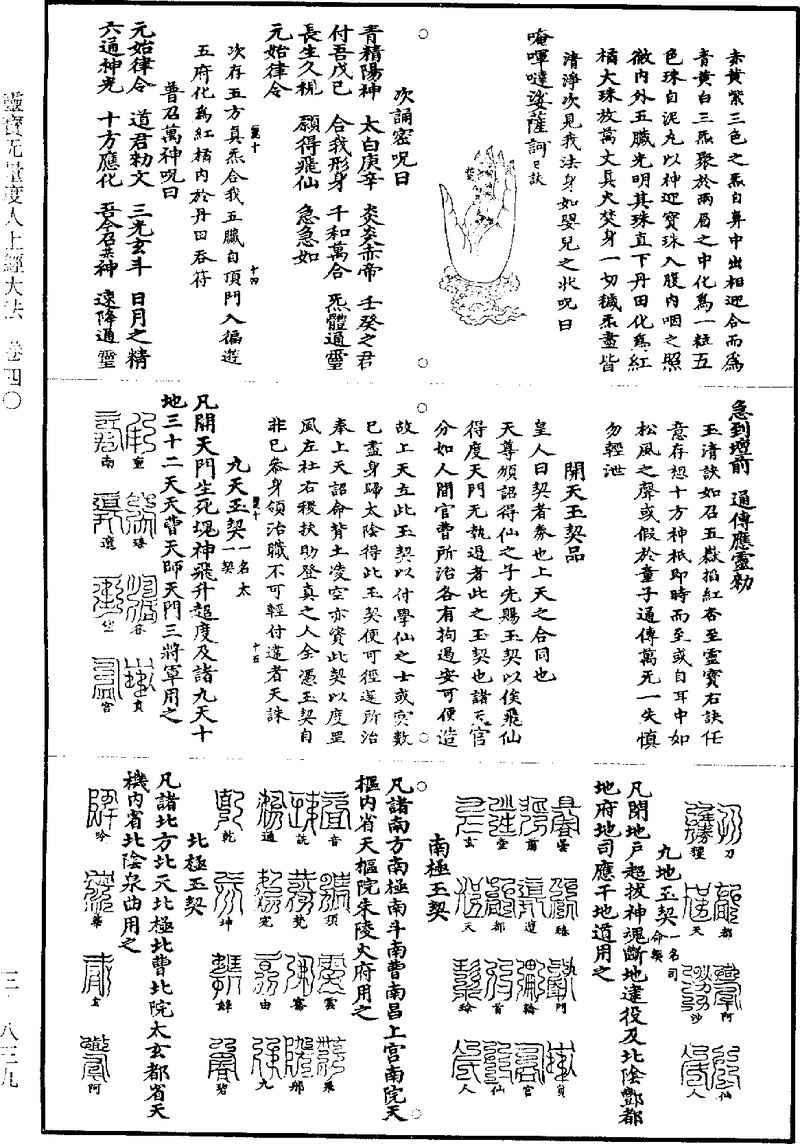 赤黃紫三色之炁自鼻中出相迎合而爲
青黃白三炁聚於兩眉之中化爲一粒五
色珠自泥丸以神迎寶珠入腹内咽之照
徹内外五臟光明其珠直下丹田化爲紅
橘大珠放萬丈真火焚身一切穢炁盡皆
清淨次見我法身如嬰兒之狀呪曰
唵㖶噠娑薩訶巳訣
次誦密呪曰
青精陽神 太白庚辛 炎炎赤帝 壬癸之君
付吾戊己 合我形身 千和萬合 炁體通靈
長生久視 願得飛仙 急急如
元始律令
次存五方真炁合我五臟自頂門入徧遊
五府化爲紅橘内於丹田吞符
普召萬神呪曰
元始律令 道君勑文 三光玄斗 日月之精
六通神光 十方應化 吾今召某神 速降通靈
急到壇前 通傳應靈勑
玉清訣如召五嶽掐紅杏至靈寶右訣任
意存想十方神祇即時而至或自耳中如
松風之聲或假於童子通傳萬无一失慎
勿輕泄
開天玉契品
皇人曰契者券也上天之合同也
天尊頒詔得仙之子先賜玉契以俟飛仙
得度天門无執遏者此之玉契也諸天官
分如人間官曹所治各有拘遏安可便造
故上天立此玉契以付學仙之士或寔數
已盡身歸太陰得此玉契便可徑還所治
奉上天詔命背土凌空亦賫此契以度罡
風左社右稷扶助登真之人全憑玉契自
非已參身領治職不可輕付違者天誅
九天玉契一名太一契
凡開天門生死魂神飛升超度及諸九天十
地三十二天天曹天師天門三將軍用之
重 臻 谷 負
南 遶 竺 宮
刀 都 阿 仙
獲 天 沙 人
九地玉契一名司命契
凡閉地戶超拔神魂斷地逮役及北陰酆都
地府地司應干地道用之
曇 臻 門 負
蓊 遼 輪 宮
堂 都 首 仙
玄 天 珍 人
南極玉契
凡諸南方南極南斗南曹南昌上宮南院天
樞内省天樞院朱陵火府用之
音 項 雲 飛
說 梵 騫 那
通 完 由 九
乾 坤 鋒 碧
北極玉契
凡諸北方北天北極北曹北院太玄都省天
機内省北陰泉曲用之
吟 華 玄 阿
靈寶无量度人上經大法 卷四〇
三—八三九